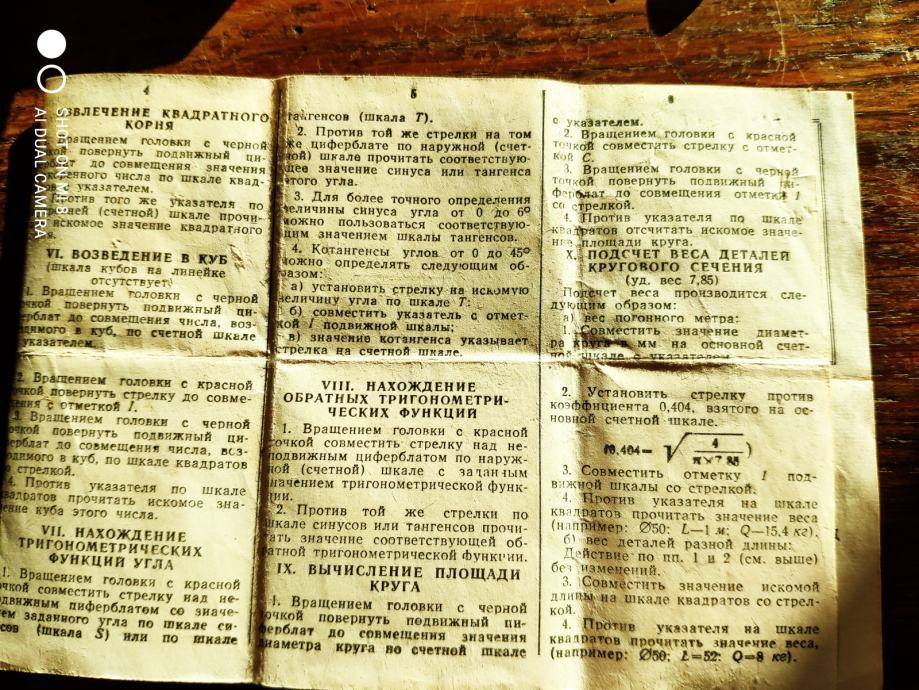 4
ЗВЛЕЧЕНИЕ КВАДРАТНОГО
КОРНЯ
ращением головки с черной
кой повернуть подвижный ци-
блат до совмещения значения
енного числа по шкале квад-
указателем.
ротив того же указателя по
ней (счетной) шкале прочи-
искомое значение квадратного
VI. ВОЗВЕДЕНИЕ В КУБ
(шкала кубов на линейке
отсутствует)
1. Вращением головки с черной
очкой повернуть подвижный ци-
ерблат до совмещения числа, воз-
димого в куб, по счетной шкале
указателем.
2. Вращением головки с красной
очкой повернуть стрелку до совме-
ения с отметкой 1.
3. Вращением головки с черной
очкой повернуть подвижный ци-
ерблат до совмещения числа, воз-
одимого в куб, по шкале квадратов
о стрелкой.
4. Против указателя по шкале
вадратов прочитать искомое зна-
ение куба этого числа.
VII. НАХОЖДЕНИЕ
ТРИГОНОМЕТРИЧЕСКИХ
ФУНКЦИЙ УГЛА
1. Вращением головки с красной
очкой совместить стрелку над не-
одвижным циферблатом со значе-
ем заданного угла по шкале си-
сов (шкала S) или по шкале
5
тангенсов (шкала T).
2. Против той же стрелки на том
же циферблате по наружной (счет-
ной) шкале прочитать соответствую-
щее значение синуса или тангенса
этого угла.
3. Для более точного определения
величины синуса угла от 0 до 6°
можно пользоваться соответствую-
щим значением шкалы тангенсов.
4. Котангенсы углов от 0 до 45°
можно определять следующим об-
разом:
а) установить стрелку на искомую
величину угла по шкале T:
б) совместить указатель с отмет-
кой 1 подвижной шкалы;
в) значение котангенса указывает
стрелка на счетной шкале.
VIII. НАХОЖДЕНИЕ
ОБРАТНЫХ ТРИГОНОМЕТРИ-
ЧЕСКИХ ФУНКЦИЙ
1. Вращением головки с красной
точкой совместить стрелку над не-
подвижным циферблатом по наруж-
ной (счетной) шкале с заданным
значением тригонометрической функ-
ции.
2. Против той же стрелки по
шкале синусов или тангенсов прочи-
тать значение соответствующей об-
ратной тригонометрической функции.
IX. ВЫЧИСЛЕНИЕ ПЛОЩАДИ
КРУГА
1. Вращением головки с черной
точкой повернуть подвижный ци-
ферблат до совмещения значения
диаметра круга по счетной шкале
6
с указателем.
2. Вращением головки с красной
точкой совместить стрелку с отмет-
кой C.
3. Вращением головки с черной
точкой повернуть подвижный ци-
ферблат до совмещения отметки 1
со стрелкой.
4. Против указателя по шкале
квадратов отсчитать искомое значе-
ние площади круга.
X. ПОДСЧЕТ ВЕСА ДЕТАЛЕЙ
КРУГОВОГО СЕЧЕНИЯ
(уд. вес 7,85)
Подсчет веса производится сле-
дующим образом:
а) вес погонного метра:
1. Совместить значение диамет-
ра круга в мм на основной счет-
ной шкале с указателем
2. Установить стрелку против
коэффициента 0,404, взятого на ос-
новной счетной шкале.
(0,404= √ 4 / π×7,85 )
3. Совместить отметку 1 под-
вижной шкалы со стрелкой.
4. Против указателя на шкале
квадратов прочитать значение веса
(например: Ø50; L—1 м; Q—15,4 кг).
б) вес деталей разной длины:
Действие по пп. 1 и 2 (см. выше)
без изменений.
3. Совместить значение искомой
длины на шкале квадратов со стрел-
кой.
4. Против указателя на шкале
квадратов прочитать значение веса,
(например: Ø50; L=52: Q=8 кг).
SHOT ON MI 8
AI DUAL CAMERA